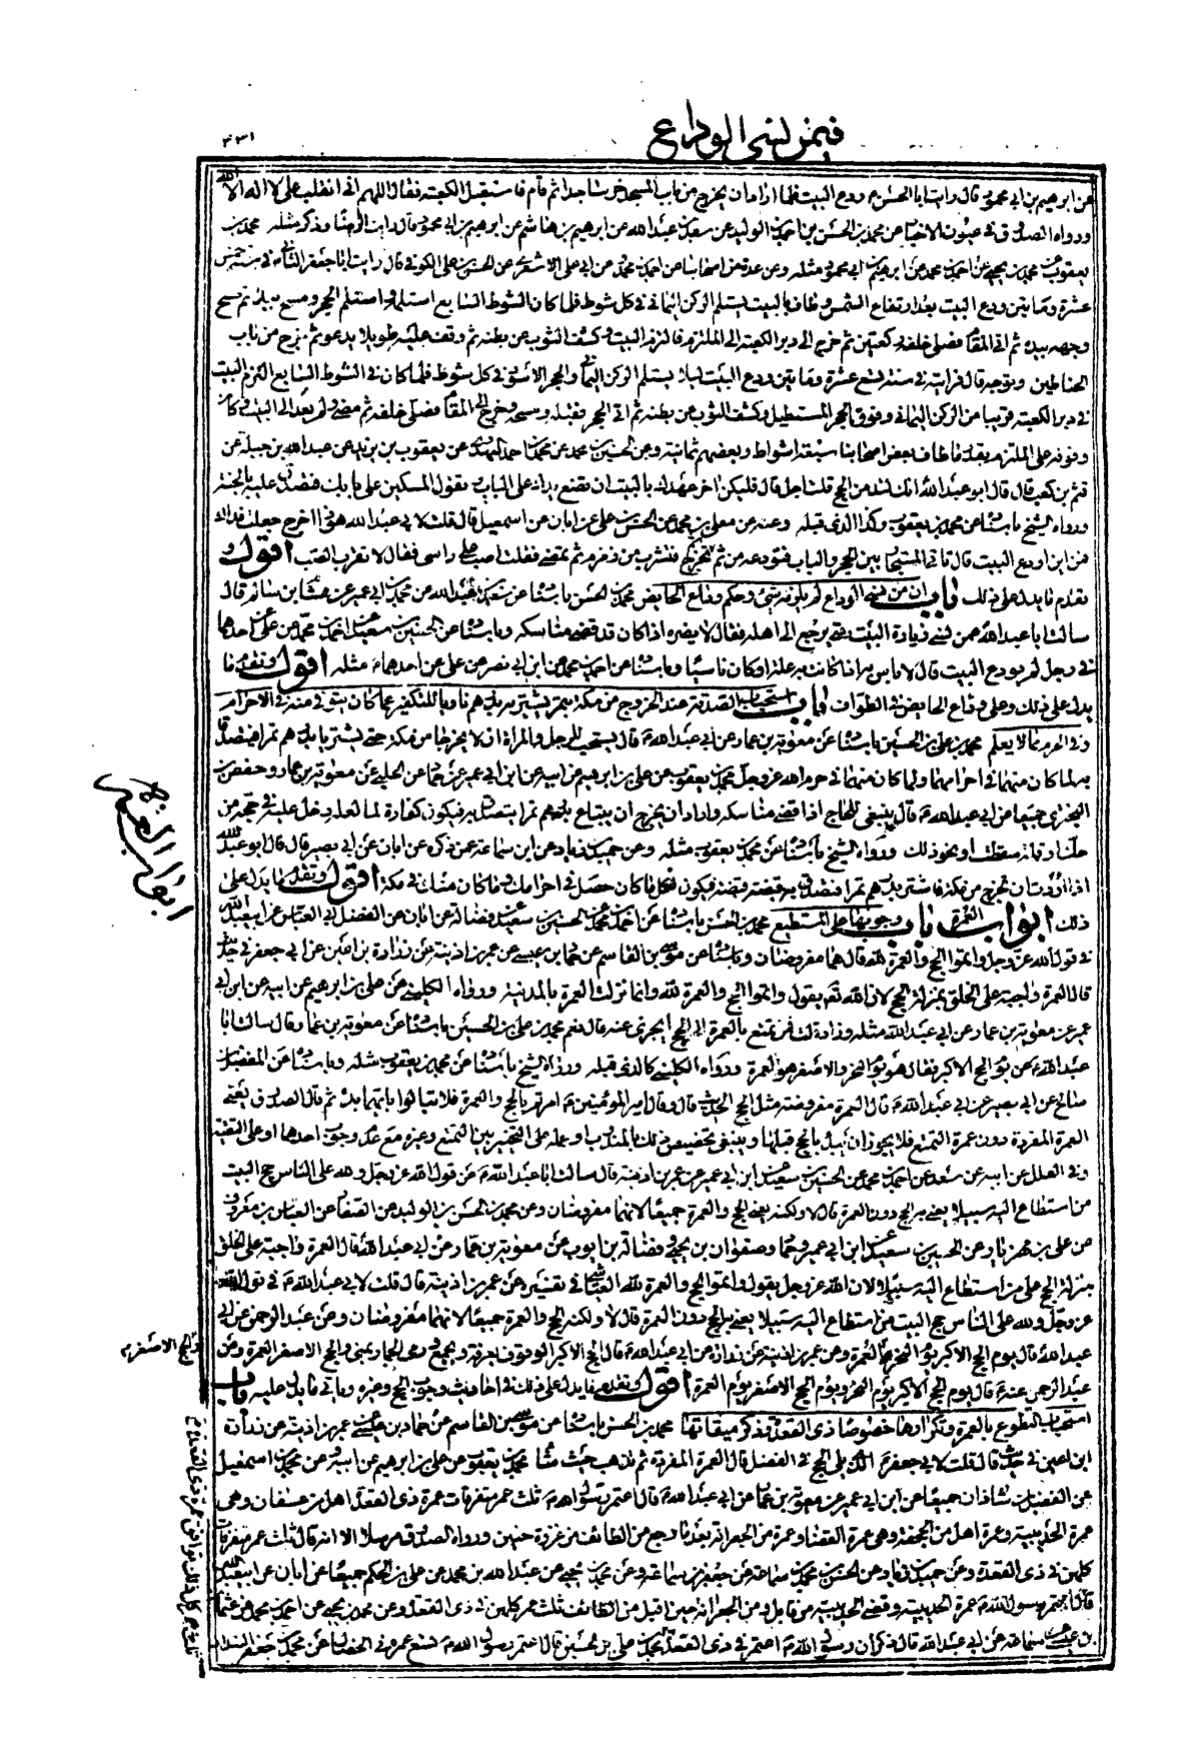 فيمن نسى الوداع
٤٣١
عن ابرهيم بن ابى محمود قال رايت ابا الحسن ع ودع البيت فلما اراد ان يخرج من باب المسجد خر ساجدا ثم قام فاستقبل الكعبة فقال اللهم انى انقلب على لا اله الا الله
ورواه الصدوق فى عيون الاخبار عن محمد بن الحسن بن احمد بن الوليد عن سعد بن عبد الله عن ابرهيم بن هاشم عن ابرهيم بن ابى محمود قال رايت الرضا وذكر مثله محمد بن
يعقوب عن محمد بن يحيى عن احمد بن محمد عن ابرهيم بن ابى محمود مثله وعن عدة من اصحابنا عن احمد بن محمد عن ابى على الاشعرى عن الحسن بن على الكوفى قال رايت ابا جعفر الثانى فى سنة خمس
عشرة ومايتين ودع البيت بعد ارتفاع الشمس وطاف بالبيت يستلم الركن اليمانى فى كل شوط فلما كان الشوط السابع استلمه واستلم الحجر ومسح بيده ثم مسح
وجهه بيده ثم اتى المقام فصلى خلفه ركعتين ثم خرج الى دبر الكعبة الى الملتزم فالتزم البيت وكشف الثوب عن بطنه ثم وقف عليه طويلا يدعو ثم خرج من باب
الحناطين وتوجه قال فرايته فى سنة تسع عشرة ومايتين ودع البيت ليلا يستلم الركن اليمانى والحجر الاسود فى كل شوط فلما كان فى الشوط السابع التزم البيت
فى دبر الكعبة قريبا من الركن اليمانى وفوق الحجر المستطيل وكشف الثوب عن بطنه ثم اتى الحجر فقبله ومسحه وخرج الى المقام فصلى خلفه ثم مضى ولم يعد الى البيت وكان
وقوفه على الملتزم بقدر ما طاف بعض اصحابنا سبعة اشواط وبعضهم ثمانية وعن الحسين بن محمد عن محمد بن احمد النهدى عن يعقوب بن يزيد عن عبد الله بن جبلة عن
قثم بن كعب قال قال ابو عبد الله انك لتدمن الحج قلت اجل قال فليكن اخر عهدك بالبيت ان تضع يدك على الباب وتقول المسكين على بابك فتصدق عليه بالجنة
ورواه الشيخ باسناده عن محمد بن يعقوب وكذا الذى قبله وعنه عن معلى بن محمد عن الحسن بن على عن ابان عن اسمعيل قال قلت لابى عبد الله هو ذا اخرج جعلت فداك
فمن اين اودع البيت قال تاتى المستجار بين الحجر والباب فتودعه من ثم ثم تخرج فتشرب من زمزم ثم تمضى فقلت اصب على راسى فقال لا تقرب الصب اقول و
تقدم ما يدل على ذلك باب ان من نسى الوداع لم يلزمه شئ وحكم وداع الحايض محمد بن الحسن باسناده عن سعد بن عبد الله عن محمد بن ابى عمير عن هشام بن سالم قال
سالت ابا عبد الله عمن نسى زيارة البيت حتى يرجع الى اهله فقال لا يضره اذا كان قد قضى مناسكه وباسناده عن الحسين بن سعيد عن احمد بن محمد عن على عن احدهما
فى رجل لم يودع البيت قال لا باس به اذا كانت به علة او كان ناسيا وباسناده عن احمد بن محمد عن ابن ابى نصر عن على عن احدهماء مثله اقول وتقدم ما
يدل على ذلك وعلى وداع الحايض فى الطواف باب استحباب الصدقة عند الخروج من مكة بتمر يشتريه بدرهم ناويا للتكفير عما كان منه فى الاحرام
وفى الحرم مما لا يعلم محمد بن على بن الحسين باسناده عن معوية بن عمار عن ابى عبد الله ع قال يستحب للرجل والمراة ان لا يخرجا من مكة حتى يشتريا بدرهم تمرا فيتصدقا
به لما كان منهما فى احرامهما ولما كان منهما فى حرم الله عز وجل محمد بن يعقوب عن على بن ابرهيم عن ابيه عن ابن ابى عمير عن حماد عن الحلبى عن معوية بن عمار وحفص بن
البخترى جميعا عن ابى عبد الله ع قال ينبغى للحاج اذا قضى مناسكه واراد ان يخرج ان يبتاع بدرهم تمرا يتصدق به فيكون كفارة لما لعله دخل عليه فى حجه من
حك او قملة سقطت او نحو ذلك ورواه الشيخ باسناده عن محمد بن يعقوب مثله وعن حميد بن زياد عن ابن سماعة عمن ذكره عن ابان عن ابى بصير قال قال ابو عبد الله
اذا اردت ان تخرج من مكة فاشتر بدرهم تمرا فتصدق به قبضة قبضة فيكون لكل ما كان حصل فى احرامك وما كان منك فى مكة اقول وتقدم ما يدل على
ذلك ابواب العمرة باب وجوبها على المستطيع محمد بن الحسن باسناده عن احمد بن محمد عن الحسين بن سعيد عن فضالة عن ابان عن الفضل ابى العباس عن ابى عبد الله
فى قول الله عز وجل واتموا الحج والعمرة لله قال هما مفروضان وباسناده عن موسى بن القاسم عن حماد بن عيسى عن عمر بن اذينة عن زرارة بن اعين عن ابى جعفر فى حديث
قال العمرة واجبة على الخلق بمنزلة الحج لان الله تعالى يقول واتموا الحج والعمرة لله وانما نزلت العمرة بالمدينة ورواه الكلينى عن على بن ابرهيم عن ابيه عن ابن ابى
عمير عن معوية بن عمار عن ابى عبد الله مثله وزاد قلت فمن تمتع بالعمرة الى الحج ايجزى عنه قال نعم محمد بن على بن الحسين باسناده عن معوية بن عمار قال سالت ابا
عبد الله ع عن يوم الحج الاكبر فقال هو يوم النحر والاصغر هو العمرة ورواه الكلينى كالذى قبله ورواه الشيخ باسناده عن محمد بن يعقوب مثله وباسناده عن المفضل بن
صالح عن ابى بصير عن ابى عبد الله ع قال العمرة مفروضة مثل الحج الحديث قال وقال امير المؤمنين ع امرتم بالحج والعمرة فلا تبالوا بايهما بداتم قال الصدوق يعنى
العمرة المفردة دون عمرة التمتع فلا يجوز ان يبدا بالحج قبلها وينبغى تخصيص ذلك بالمندوب وحمله على التخيير بين التمتع وغيره مع عدم وجوب احدها او على التقية
وفى العلل عن ابيه عن سعد عن احمد بن محمد عن الحسين بن سعيد عن ابن ابى عمير عن عمر بن اذينة قال سالت ابا عبد الله ع عن قول الله عز وجل ولله على الناس حج البيت
من استطاع اليه سبيلا يعنى به الحج دون العمرة قال لا ولكنه يعنى الحج والعمرة جميعا لانهما مفروضان وعن محمد بن الحسن بن الوليد عن الصفار عن العباس بن معروف
عن على بن مهزيار عن الحسين بن سعيد عن ابن ابى عمير وحماد وصفوان بن يحيى وفضالة بن ايوب عن معوية بن عمار عن ابى عبد الله قال العمرة واجبة على الخلق
بمنزلة الحج على من استطاع اليه سبيلا لان الله عز وجل يقول واتموا الحج والعمرة لله العياشى فى تفسيره عن عمر بن اذينة قال قلت لابى عبد الله ع فى قول الله
عز وجل ولله على الناس حج البيت من استطاع اليه سبيلا يعنى به الحج دون العمرة قال لا ولكنه الحج والعمرة جميعا لانهما مفروضان وعن عبد الرحمن عن ابى
عبد الله قال يوم الحج الاكبر يوم النحر والحج الاصغر العمرة وعن عمر بن اذينة عن زرارة عن ابى عبد الله ع قال الحج الاكبر الوقوف بعرفة وبجمع ورمى الجمار بمنى والحج الاصغر العمرة وعن
عبد الرحمن عنه ع قال يوم الحج الاكبر يوم النحر ويوم الحج الاصغر يوم العمرة اقول وتقدم ما يدل على ذلك فى احاديث وجوب الحج وغيره وياتى ما يدل عليه باب
استحباب التطوع بالعمرة وتكرارها خصوصا ذى القعدة وذكر ميقاتها محمد بن الحسن باسناده عن موسى بن القاسم عن حماد بن عيسى عن عمر بن اذينة عن زرارة
ابن اعين فى حديث قال قلت لابى جعفر ع الذى يلى الحج فى الفضل قال العمرة المفردة ثم يذهب حيث شاء محمد بن يعقوب عن على بن ابرهيم عن ابيه وعن محمد بن اسمعيل
عن الفضل بن شاذان جميعا عن ابن ابى عمير عن معوية بن عمار عن ابى عبد الله ع قال اعتمر رسول الله ص ثلث عمر متفرقات عمرة ذى القعدة اهل من عسفان وهى
عمرة الحديبية وعمرة اهل من الجحفة وهى عمرة القضاء وعمرة من الجعرانة بعد ما رجع من الطائف من غزوة حنين ورواه الصدوق مرسلا الا انه قال ثلث عمر متفرقات
كلهن فى ذى القعدة وعن حميد بن زياد عن الحسن بن محمد بن سماعة عن جعفر بن سماعة وعن محمد بن يحيى عن عبد الله بن محمد عن على بن الحكم جميعا عن ابان عن ابى عبد الله
قال اعتمر رسول الله ص عمرة الحديبية وقضى الحديبية من قابل ومن الجعرانة حين اقبل من الطائف ثلث عمر كلهن فى ذى القعدة وعن محمد بن يحيى عن احمد بن محمد عن عثمان
بن عيسى عن سماعة عن ابى عبد الله قال ذكر ان رسول الله ص اعتمر فى ذى القعدة محمد بن على بن الحسين قال اعتمر رسول الله ص تسع عمر وفى الخصال عن محمد بن جعفر البندار
ابواب العمرة
والحج الاصغر